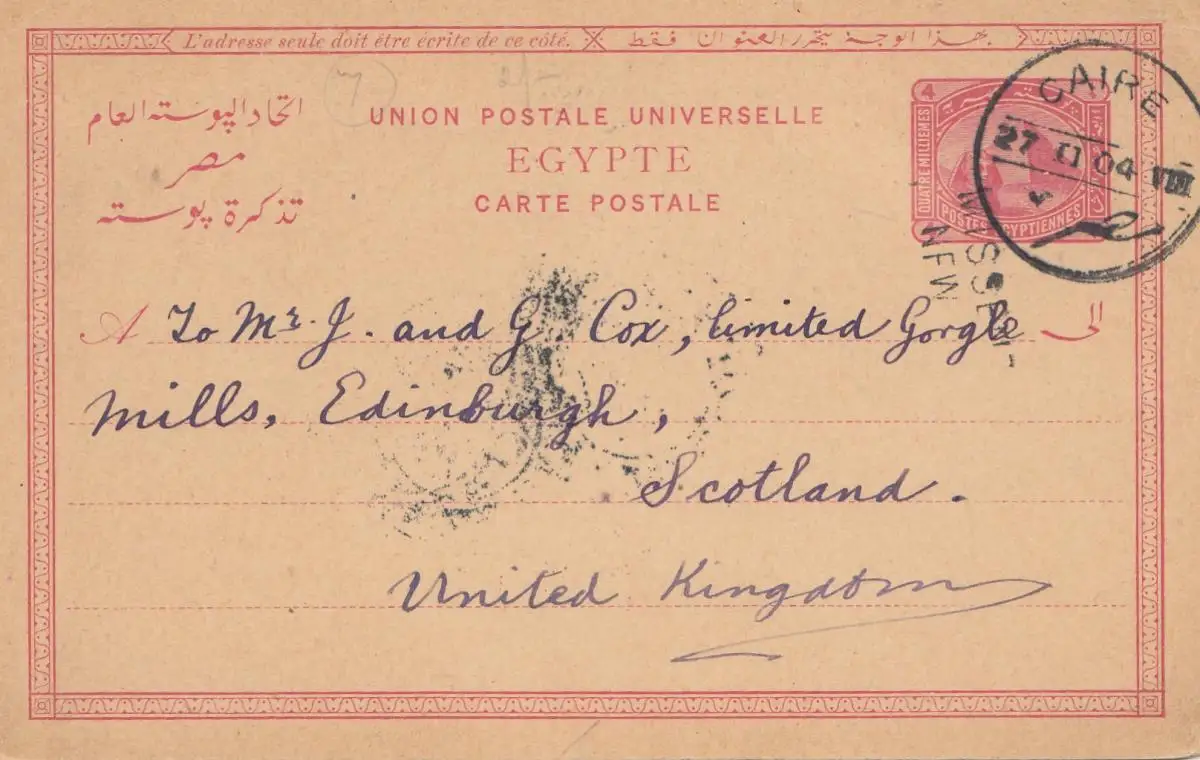 L'adresse seule doit être écrite de ce côté. بهذا الوجه يحرر العنوان فقط
اتحاد البوسته العام
مصر
تذكرة بوسته
UNION POSTALE UNIVERSELLE
EGYPTE
CARTE POSTALE
4
QUATRE MILLIEMES
POSTES EGYPTIENNES
CAIRE
27 II 04 VIII
A To Mr. J. and G. Cox, limited Gorgie الى
Mills, Edinburgh,
Scotland.
United Kingdom